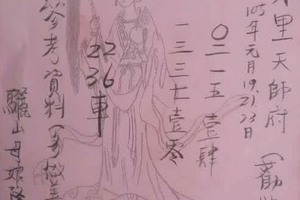 里天師府（勸
105年元月19.21.23日
〇二一五壹肆
一三三七壹零
22
36車
參考資料（
驪山母娘降